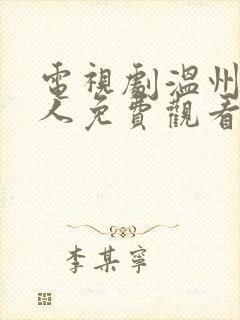 電視劇溫州
人免費觀看
李某寧